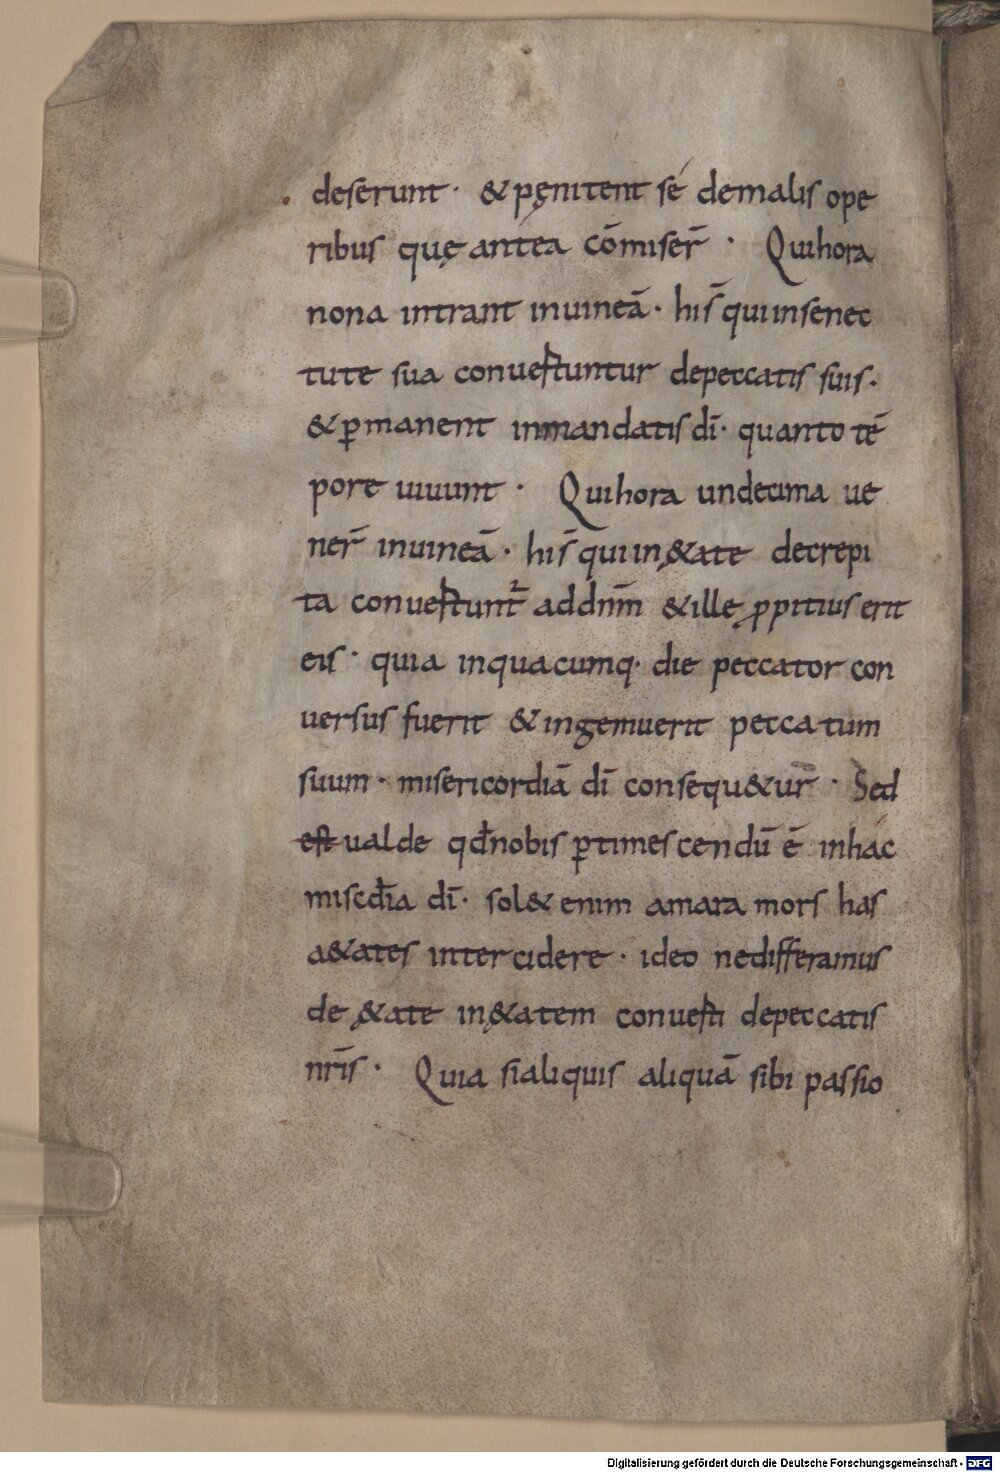 deserunt · & pęnitent sé demalis ope
ribus quę antea cōmiser̄ · Quihora
nona intrant inuineā · his̄ quiinsenec
tute sua conuertuntur depeccatis suis ·
& ꝑmanent inmandatis dī · quanto tē
pore uiuunt · Quihora undecima ue
ner̄ inuineā · his̄ quiin&ate decrepi
ta conuertunt᷑ addnm̄ &ille propitius erit
eis · quia inquacumq· die peccator con
uersus fuerit & ingemuerit peccatum
suum · misericordiā dī consequ&ur · Sed
est ualde qd̄nobis ꝑtimescendū ē inhác
miscdīa dī · sol& enim amara mors has
a&ates intercidere · ideo nedifferamus
de &ate in&atem conuerti depeccatis
nr̄is · Quia sialiquis aliquā sibi passio
Digitalisierung gefördert durch die Deutsche Forschungsgemeinschaft - DFG